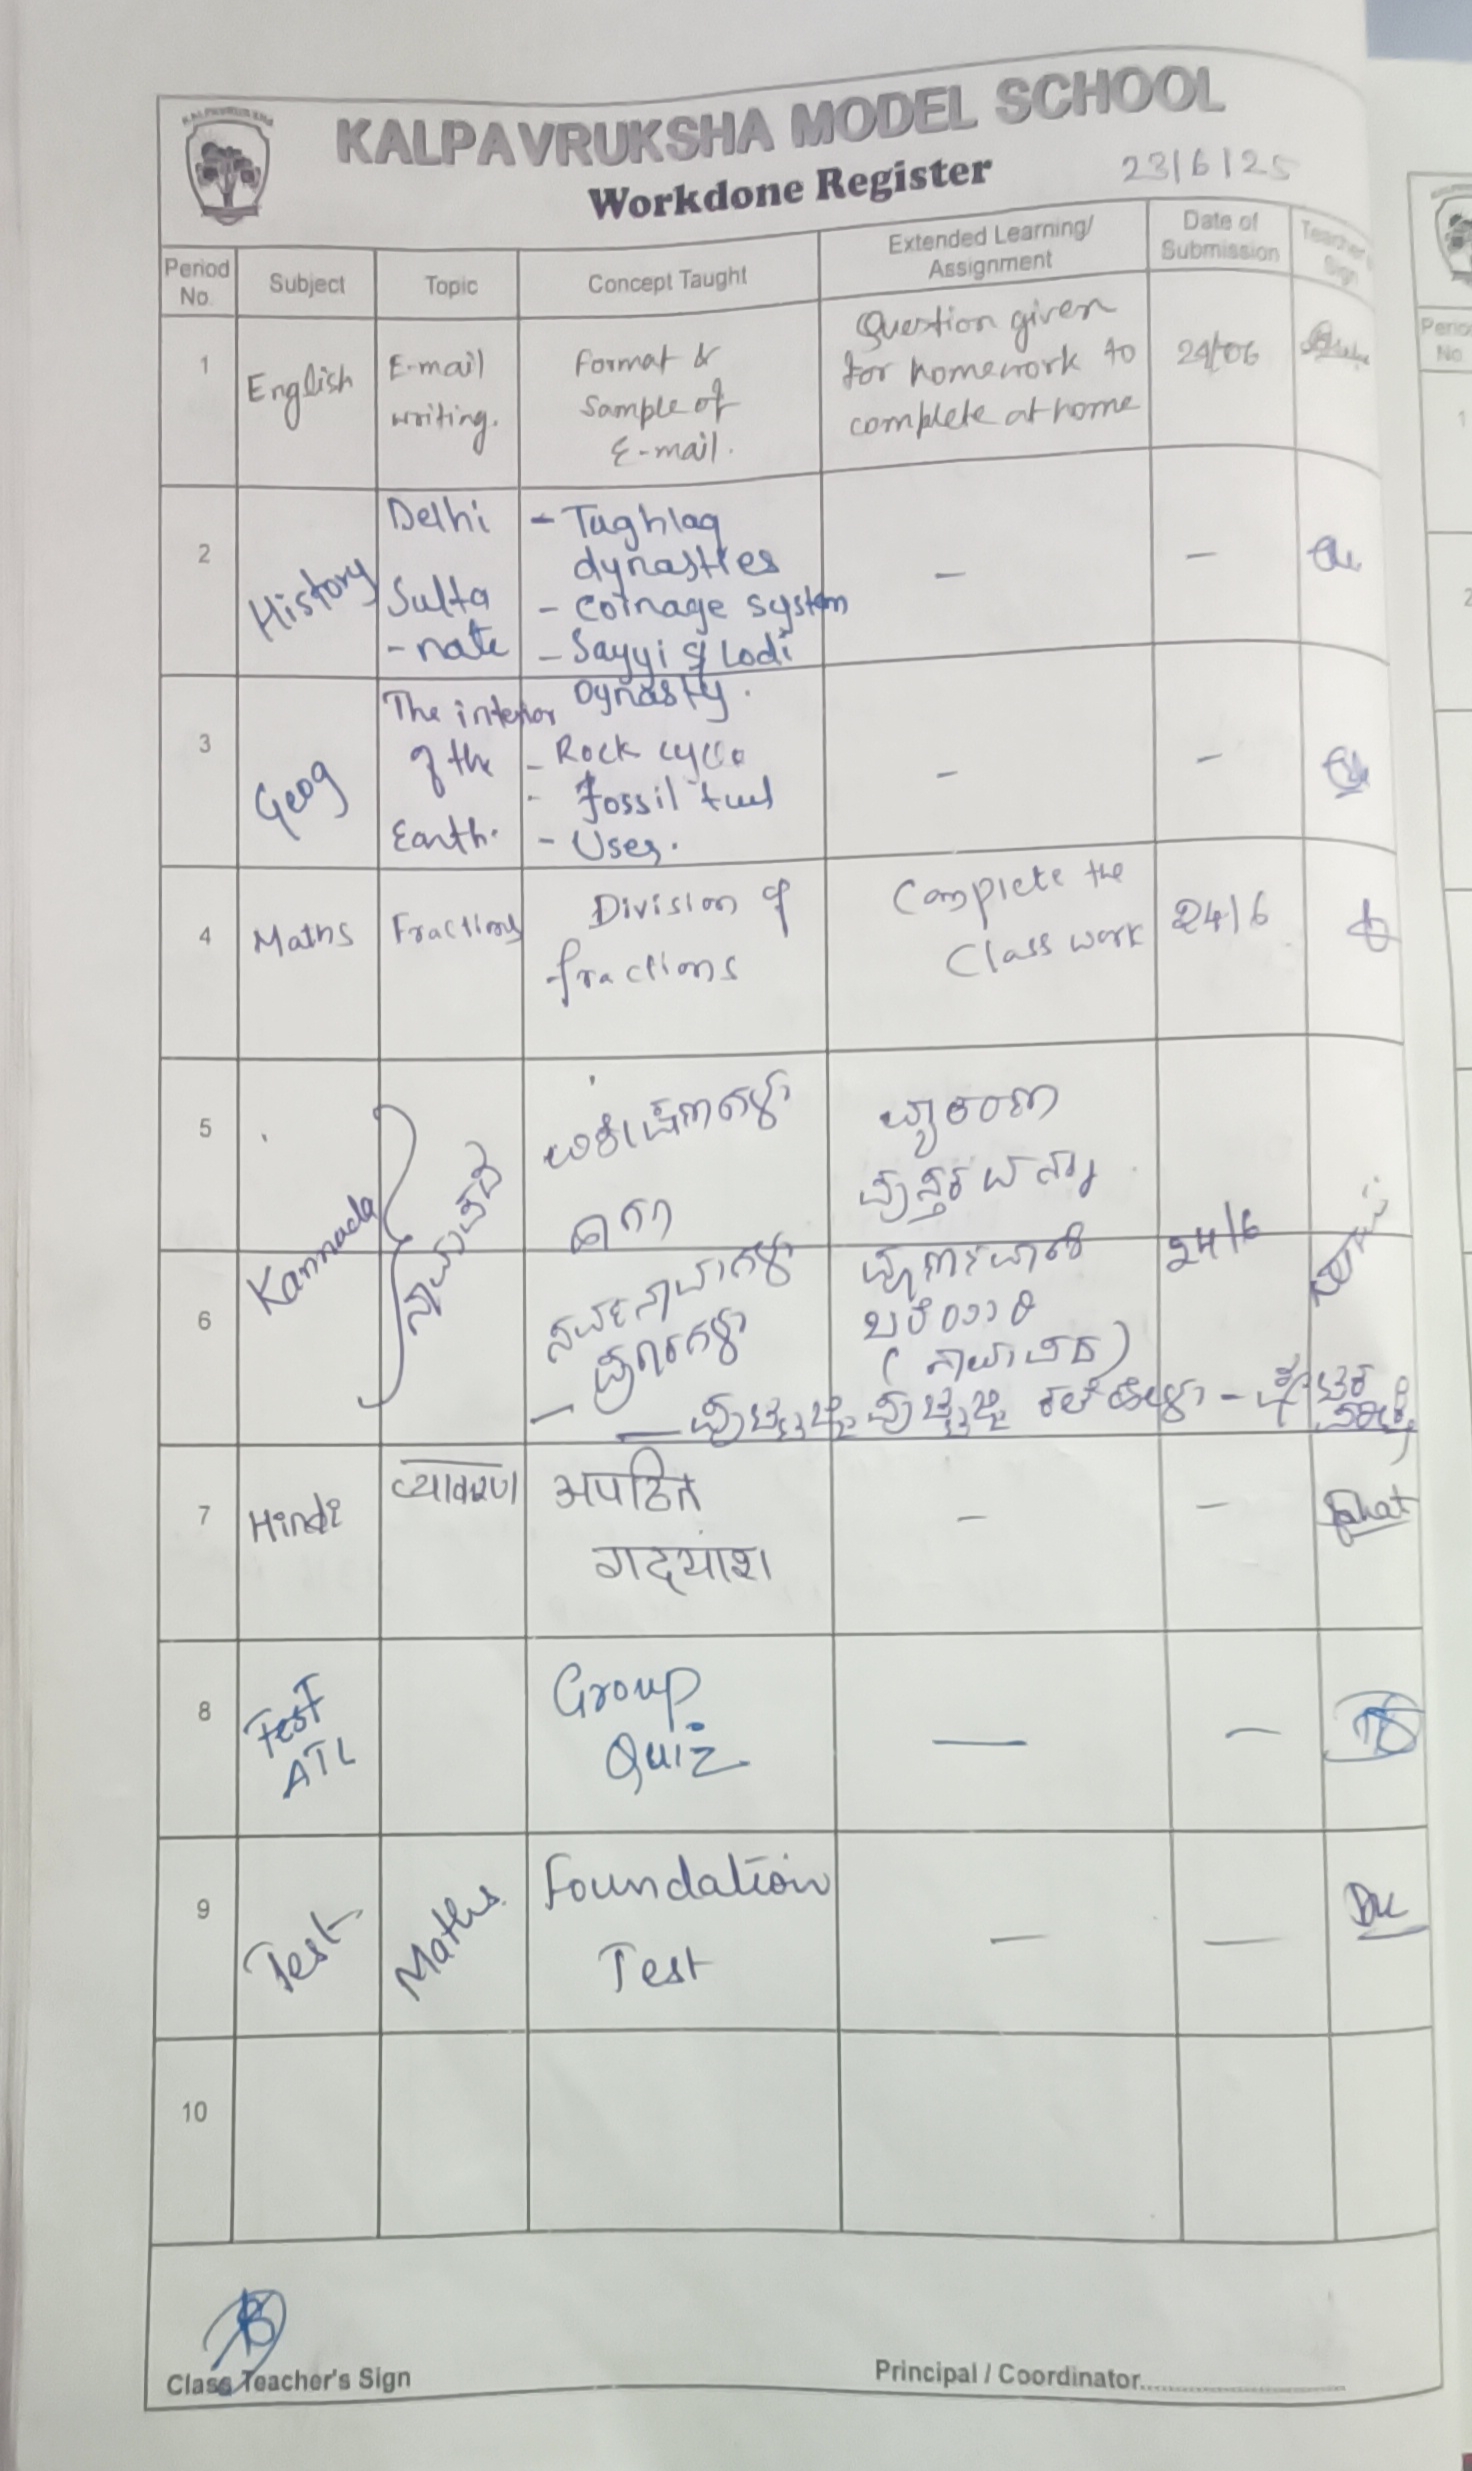 KALPAVRUKSHA
KALPAVRUKSHA MODEL SCHOOL
Workdone Register
23/6/25
Period No.
Subject
Topic
Concept Taught
Extended Learning/
Assignment
Date of
Submission
Teacher's
Sign
1
English
E-mail
writing.
Format &
Sample of
E-mail.
Question given
for homework to
complete at home
24/06
2
History
Delhi
Sulta
-nate
- Tughlaq
dynasties
- Coinage system
- Sayyi & Lodi
Dynasty.
-
-
3
Geog
The interior
of the
Earth.
- Rock cycle
- Fossil fuel
- Uses.
-
-
4
Maths
Fractions
Division of
fractions
Complete the
Class work
24/6
5
6
Kannada
ನಾಮಪದ
ಹಾಗೂ
ಸರ್ವನಾಮಗಳು
ಪ್ರಕಾರಗಳು
ವ್ಯಾಕರಣ
ಪುಸ್ತಕವನ್ನು
ಪೂರ್ಣವಾಗಿ
ಬರೆಯಿರಿ
(ನಾಮಪದ)
24/6
7
Hindi
व्याकरण
अपठित
गद्यांश
-
-
8
Test
ATL
Group
Quiz
-
-
9
Test
Maths
Foundation
Test
-
-
10
Class Teacher's Sign
Principal / Coordinator